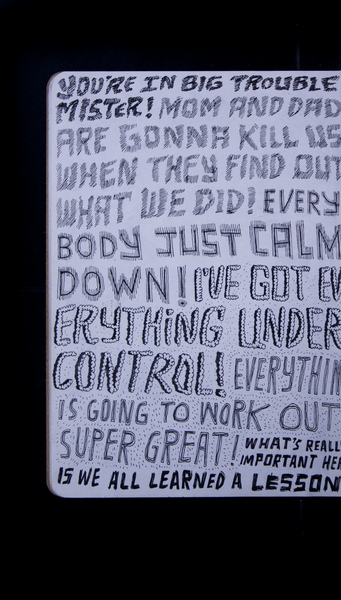 YOU'RE IN BIG TROUBLE
MISTER! MOM AND DAD
ARE GONNA KILL US
WHEN THEY FIND OUT
WHAT WE DID! EVERY
BODY JUST CALM
DOWN! I'VE GOT EV
ERYTHING UNDER
CONTROL! EVERYTHIN
IS GOING TO WORK OUT
SUPER GREAT! WHAT'S REALLY
IMPORTANT HER
IS WE ALL LEARNED A LESSON